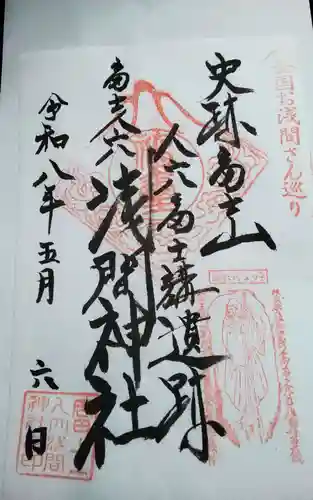 全国お浅間さん巡り
史跡富士山
人穴富士講遺跡
富士人穴
浅間神社
令和八年五月六日